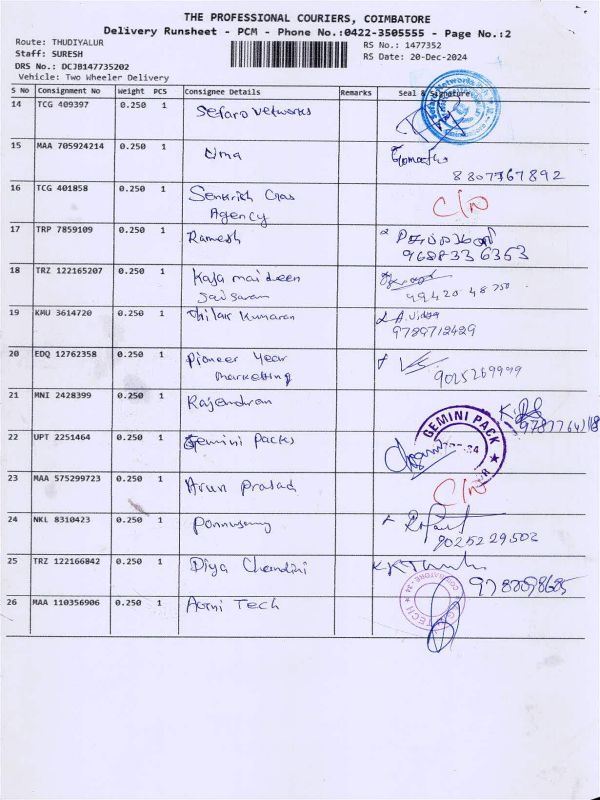 THE PROFESSIONAL COURIERS, COIMBATORE
Delivery Runsheet - PCM - Phone No.:0422-3505555 - Page No.:2
Route: THUDIYALUR
RS No.: 1477352
Staff: SURESH
RS Date: 20-Dec-2024
DRS No.: DCJB147735202
Vehicle: Two Wheeler Delivery
S No Consignment No Weight PCS Consignee Details Remarks Seal & Signature
14 TCG 409397 0.250 1 Sefaro Networks
15 MAA 705924214 0.250 1 Uma
8807767892
16 TCG 401858 0.250 1 Gas C/N
Agency
17 TRP 7859109 0.250 1 Ramesh
9688336363
18 TRZ 122165207 0.250 1 Kaja maideen
99420 48750
19 KMU 3614720 0.250 1 Thilak Kumaran A. Vidya
9789712429
20 EDQ 12762358 0.250 1 Pioneer Year
marketting 9025269999
21 MNI 2428399 0.250 1 Rajendran
GEMINI PACK
22 UPT 2251464 0.250 1 Gemini Packs
23 MAA 575299723 0.250 1 Arun Prasad C/N
24 NKL 8310423 0.250 1 Ponnusamy
9025229503
25 TRZ 122166842 0.250 1 Diya Chandini
COIMBATORE
26 MAA 110356906 0.250 1 Tech
TECH